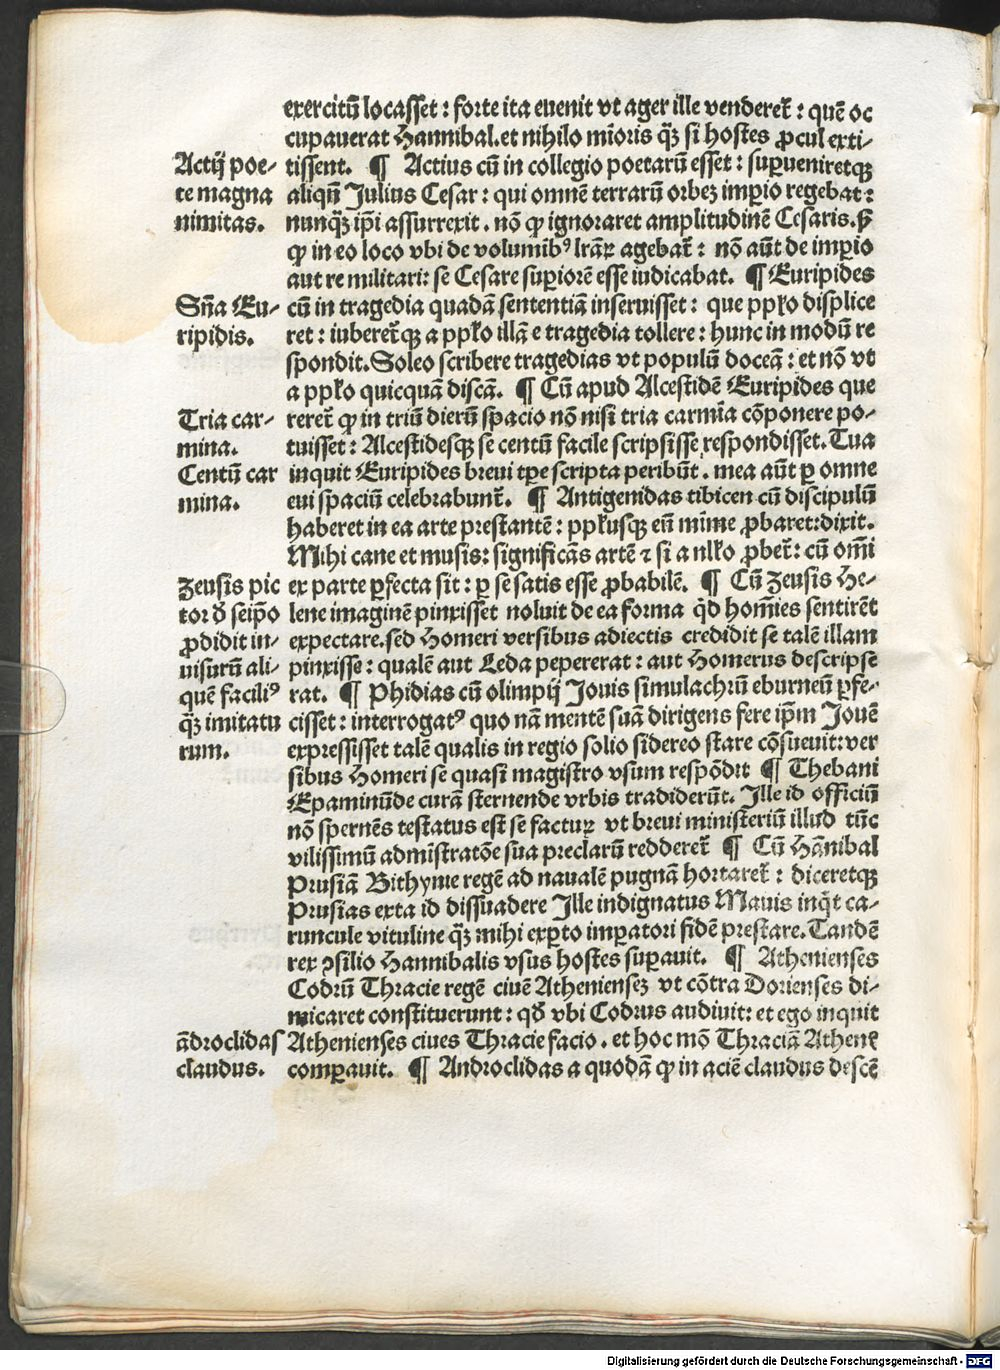 exercitū locasset : forte ita euenit vt ager ille venderet̄ : quē oc
cupauerat Hannibal. et nihilo mīoris q̄ꝫ si hostes ꝓcul exti-
Actij poe-
te magna
nimitas.
tissent. ¶ Actius cū in collegio poetarū esset : suꝑueniretqꝫ
aliqn̄ Julius Cesar : qui omnē terrarū orbeꝫ imꝑio regebat :
nunq̄ꝫ ip̄i assurrexit . nō ꝙ ignoraret amplitudinē Cesaris. sꝫ
ꝙ in eo loco vbi de voluminibꝰ lr̄aꝝ agebat̄ : nō aūt de imꝑio
aut re militari: se Cesare suꝑiorē esse iudicabat. ¶ Euripides
Sn̄a Eu-
ripidis.
cū in tragedia quadā sententiā inseruisset : que ppl̄o displice
ret : iuberet̄qꝫ a ppl̄o illā e tragedia tollere : hunc in modū re
spondit. Soleo scribere tragedias vt populū doceā : et nō vt
a ppl̄o quicquā discā. ¶ Cū apud Alcestidē Euripides que
Tria car-
mina.
Centū car
mina.
reret̄ ꝙ in triū dierū spacio nō nisi tria carmīa cōponere po-
tuisset : Alcestidesqꝫ se centū facile scripsisse respondisset. Tua
inquit Euripides breui tꝑe scripta peribūt . mea aūt ꝑ omne
eui spaciū celebrabunt̄. ¶ Antigenidas tibicen cū discipulū
haberet in ea arte prestantē : ppl̄usqꝫ eū mīme ꝓbaret: dixit.
Mihi cane et musis : significās artē ⁊ si a nl̄lo ꝓbet̄ : cū omī
ex parte ꝑfecta sit : ꝑ se satis esse ꝓbabilē. ¶ Cū Zeusis He-
Zeusis pic
tor ꝺ̄ seip̄o
ꝓdidit in-
uisurū ali-
quē faciliꝰ
q̄ꝫ imitatu
rum.
lene imaginē pinxisset noluit de ea forma qd̄ homīes sentirēt
expectare. sed Homeri versibus adiectis credidit se talē illam
pinxisse : qualē aut Leda pepererat : aut Homerus descripse
rat. ¶ Phidias cū olimpij Jouis simulachrū eburneū ꝑfe-
cisset : interrogatꝰ quo nā mentē suā dirigens fere ip̄m Jouē
expressisset talē qualis in regio solio sidereo stare cōsueuit: ver
sibus Homeri se quasi magistro vsum respōdit ¶ Thebani
Epaminūde curā sternende vrbis tradiderūt. Ille id officiū
nō spernēs testatus est se factuꝝ vt breui ministeriū illud tūc
vilissimū admīstratōe sua preclarū redderet̄ ¶ Cū Hānibal
Prusiā Bithynie regē ad naualē pugnā hortaret̄ : diceretqꝫ
Prusias exta id dissuadere Ille indignatus Mauis inq̄t ca-
runcule vituline q̄ꝫ mihi exꝑto imꝑatori fidē prestare. Tandē
rex ꝯsilio Hannibalis vsus hostes suꝑauit. ¶ Athenienses
Codrū Thracie regē ciuē Athenienseꝫ vt cōtra Dorienses di-
micaret constituerunt : qd̄ vbi Codrus audiuit: et ego inquit
ādroclidas
claudus.
Athenienses ciues Thracie facio . et hoc mō Thraciā Athenē
comꝑauit. ¶ Androclidas a quodā ꝙ in aciē claudus descē
Digitalisierung gefördert durch die Deutsche Forschungsgemeinschaft - DFG